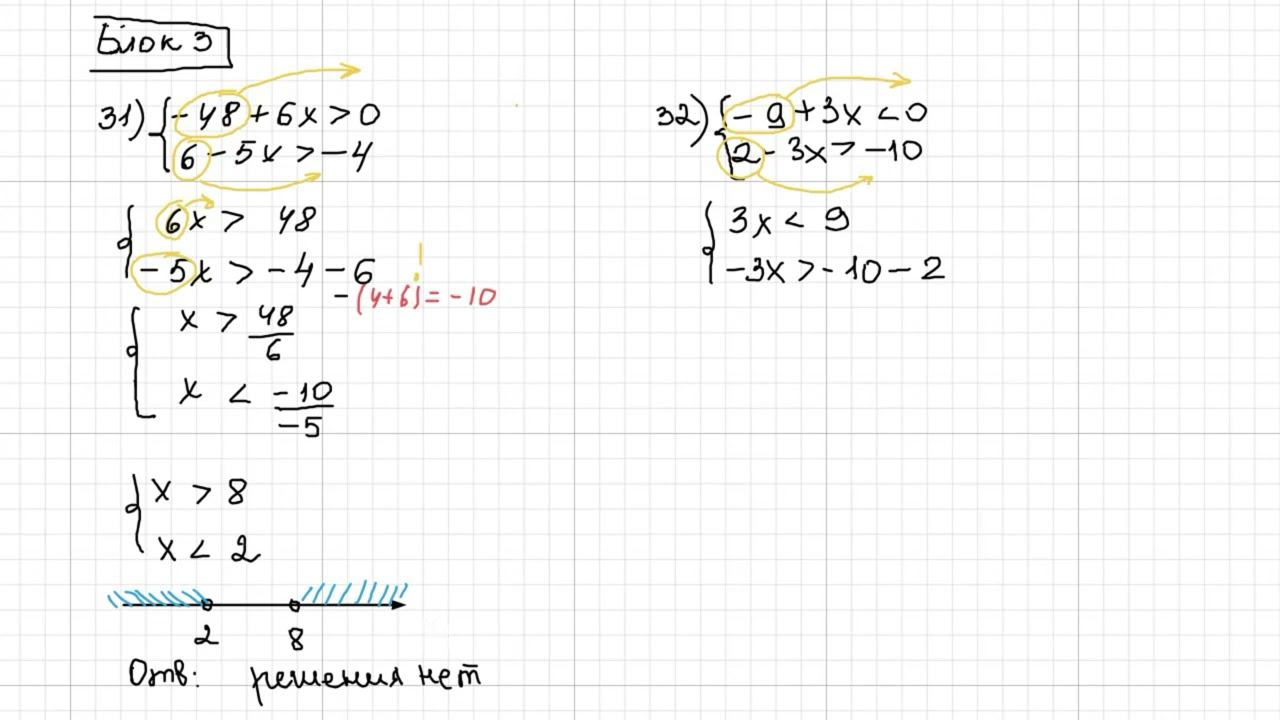 Блок 3
31) { -48 + 6x > 0
6 - 5x > -4
{ 6x > 48
-5x > -4 - 6 !
-(4+6) = -10
{ x > 48/6
x < -10/-5
{ x > 8
x < 2
2 8
Отв: решения нет
32) { -9 + 3x < 0
2 - 3x > -10
{ 3x < 9
-3x > -10 - 2